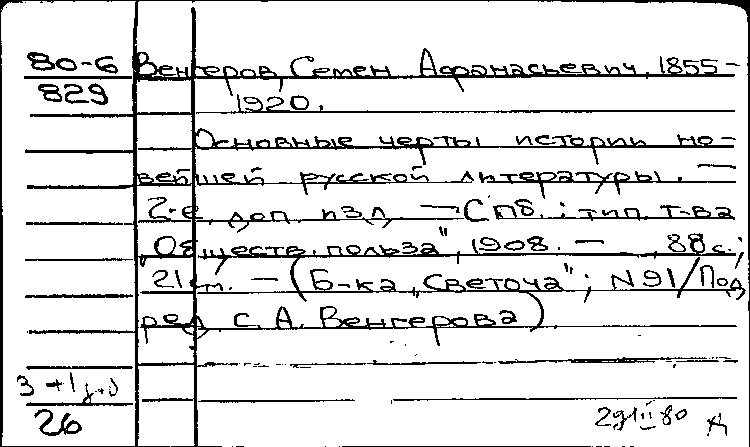 80-6 Венгеров, Семен Афанасьевич, 1855-
829 1920.
Основные черты истории но-
вейшей русской литературы. —
2-е, доп. изд. — СПб. : тип. т-ва
„Обществ. польза", 1908. — 88 с.;
21 см. — (Б-ка „Светоча"; N 91/Под
ред. С. А. Венгерова).
3 +1
26 29 II 80